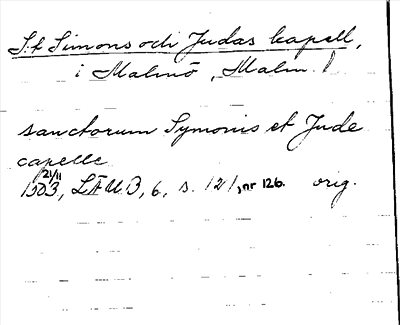 S:t Simons och Judas kapell,
i Malmö, Malm.
sanctorum Symonis et Jude
capelle
1503 21/11, LÄUB, 6, s. 121, nr 126. orig.